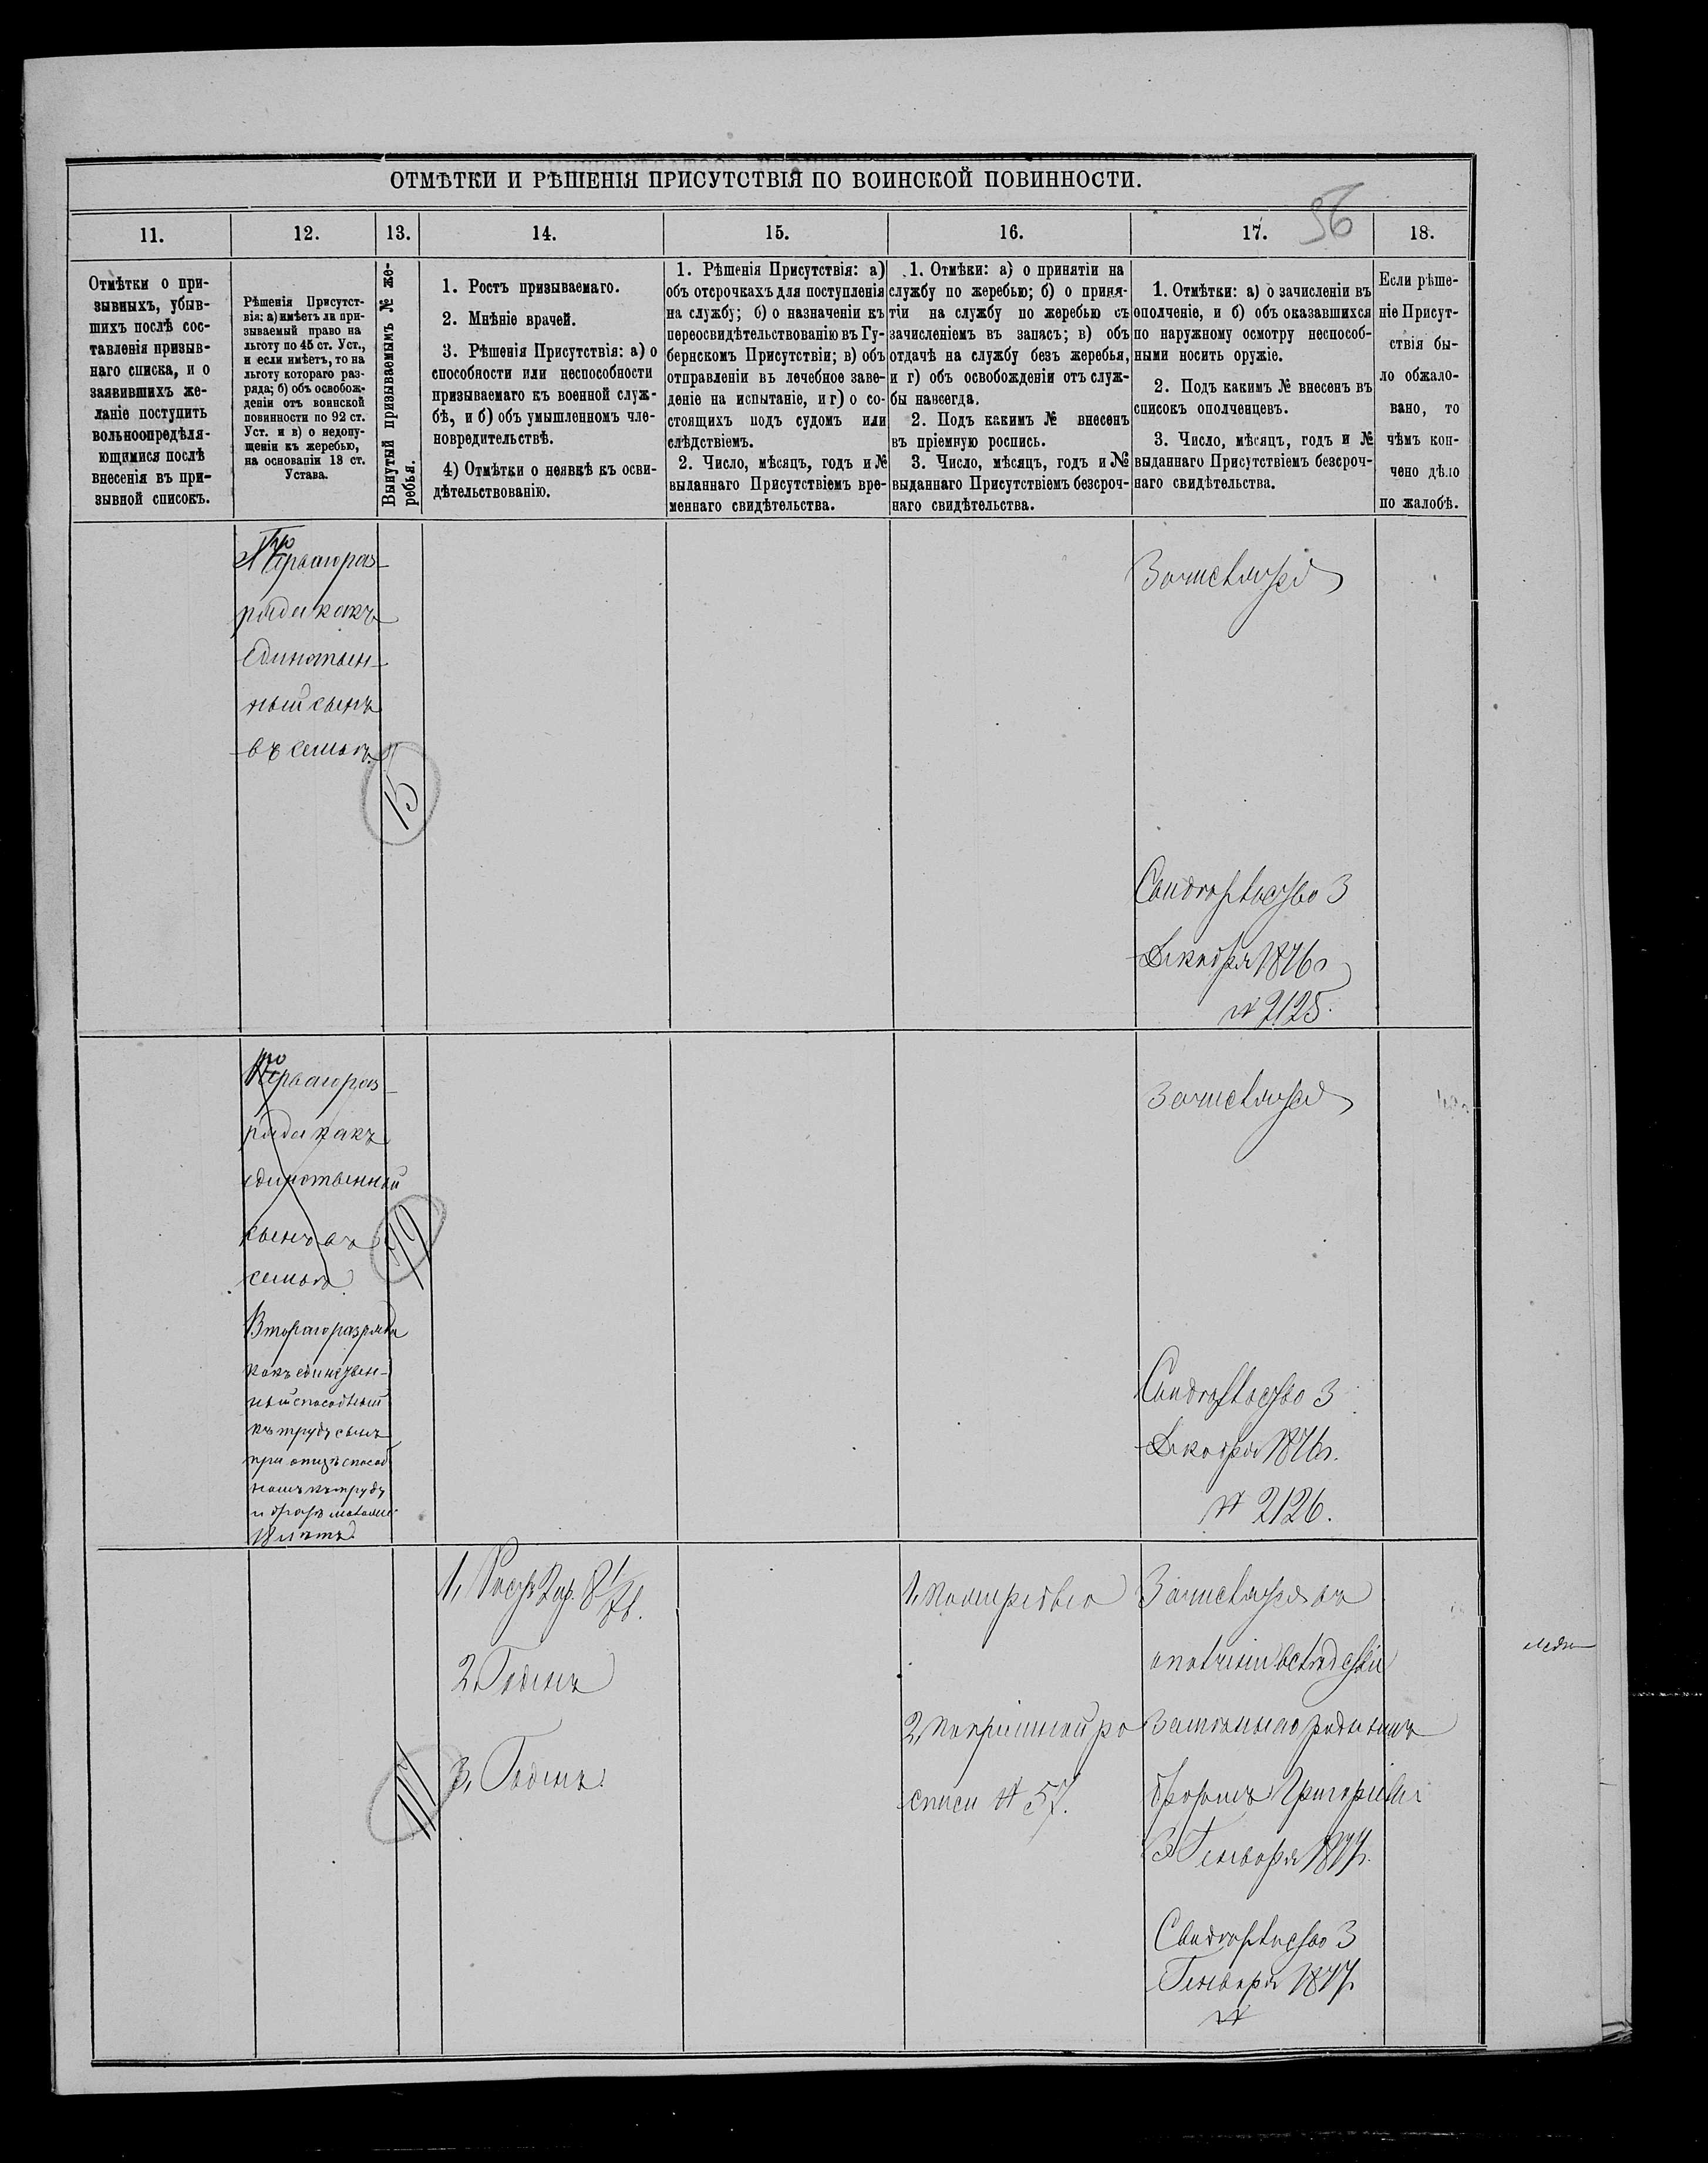 ОТМѢТКИ И РѢШЕНІЯ ПРИСУТСТВІЯ ПО ВОИНСКОЙ ПОВИННОСТИ.
56
11.
12.
13.
14.
15.
16.
17.
18.
Отмѣтки о при-
зывныхъ, убыв-
шихъ послѣ сос-
тавленія призыв-
наго списка, и о
заявившихъ же-
ланіе поступить
вольноопредѣля-
ющимися послѣ
внесенія въ при-
зывной списокъ.
Рѣшенія Присутст-
вія: а) имѣетъ ли при-
зываемый право на
льготу по 45 ст. Уст.,
и если имѣетъ, то на
льготу котораго раз-
ряда; б) объ освобож-
деніи отъ воинской
повинности по 92 ст.
Уст. и в) о недопу-
щеніи къ жеребью,
на основаніи 13 ст.
Устава.
Вынутый призываемымъ № же-
ребья.
1. Ростъ призываемаго.
2. Мнѣніе врачей.
3. Рѣшенія Присутствія: а) о
способности или неспособности
призываемаго къ военной служ-
бѣ, и б) объ умышленномъ чле-
новредительствѣ.
4) Отмѣтки о неявкѣ къ осви-
дѣтельствованію.
1. Рѣшенія Присутствія: а)
объ отсрочкахъ для поступленія
на службу; б) о назначеніи къ
переосвидѣтельствованію въ Гу-
бернскомъ Присутствіи; в) объ
отправленіи въ лечебное заве-
деніе на испытаніе, и г) о со-
стоящихъ подъ судомъ или
слѣдствіемъ.
2. Число, мѣсяцъ, годъ и №
выданнаго Присутствіемъ вре-
меннаго свидѣтельства.
1. Отмѣки: а) о принятіи на
службу по жеребью; б) о приня-
тіи на службу по жеребью съ
зачисленіемъ въ запасъ; в) объ
отдачѣ на службу безъ жеребья,
и г) объ освобожденіи отъ служ-
бы навсегда.
2. Подъ какимъ № внесенъ
въ пріемную роспись.
3. Число, мѣсяцъ, годъ и №
выданнаго Присутствіемъ безсроч-
наго свидѣтельства.
1. Отмѣтки: а) о зачисленіи въ
ополченіе, и б) объ оказавшихся
по наружному осмотру неспособ-
ными носить оружіе.
2. Подъ какимъ № внесенъ въ
списокъ ополченцевъ.
3. Число, мѣсяцъ, годъ и №
выданнаго Присутствіемъ безсроч-
наго свидѣтельства.
Если рѣше-
ніе Присут-
ствія бы-
ло обжало-
вано, то
чѣмъ кон-
чено дѣло
по жалобѣ.
Перваго раз-
ряда какъ
единствен-
ный сынъ
въ семьѣ.
15
Зачисляется
Свидѣтельство 3
Декабря 1876 г
№ 2125.
Перваго раз-
ряда какъ
единственный
сынъ въ
семьѣ.
Втораго разряда
какъ единствен-
ный способный
къ труду сынъ
при отцѣ способ
номъ къ труду
и братѣ моложе
18 лѣтъ
Зачисляется
Свидѣтельство 3
Декабря 1876 г.
№ 2126.
1, Ростъ 2 ар. 8 1/8 в.
2, Годенъ
3, Годенъ.
111
2, по пріемной ро
списи № 57.
Зачисляется въ
ополченіе вслѣдствіи
родным
братомъ Григоріемъ
3 Генваря 1877 г.
Свидѣтельство 3
Генваря 1877 г.
№